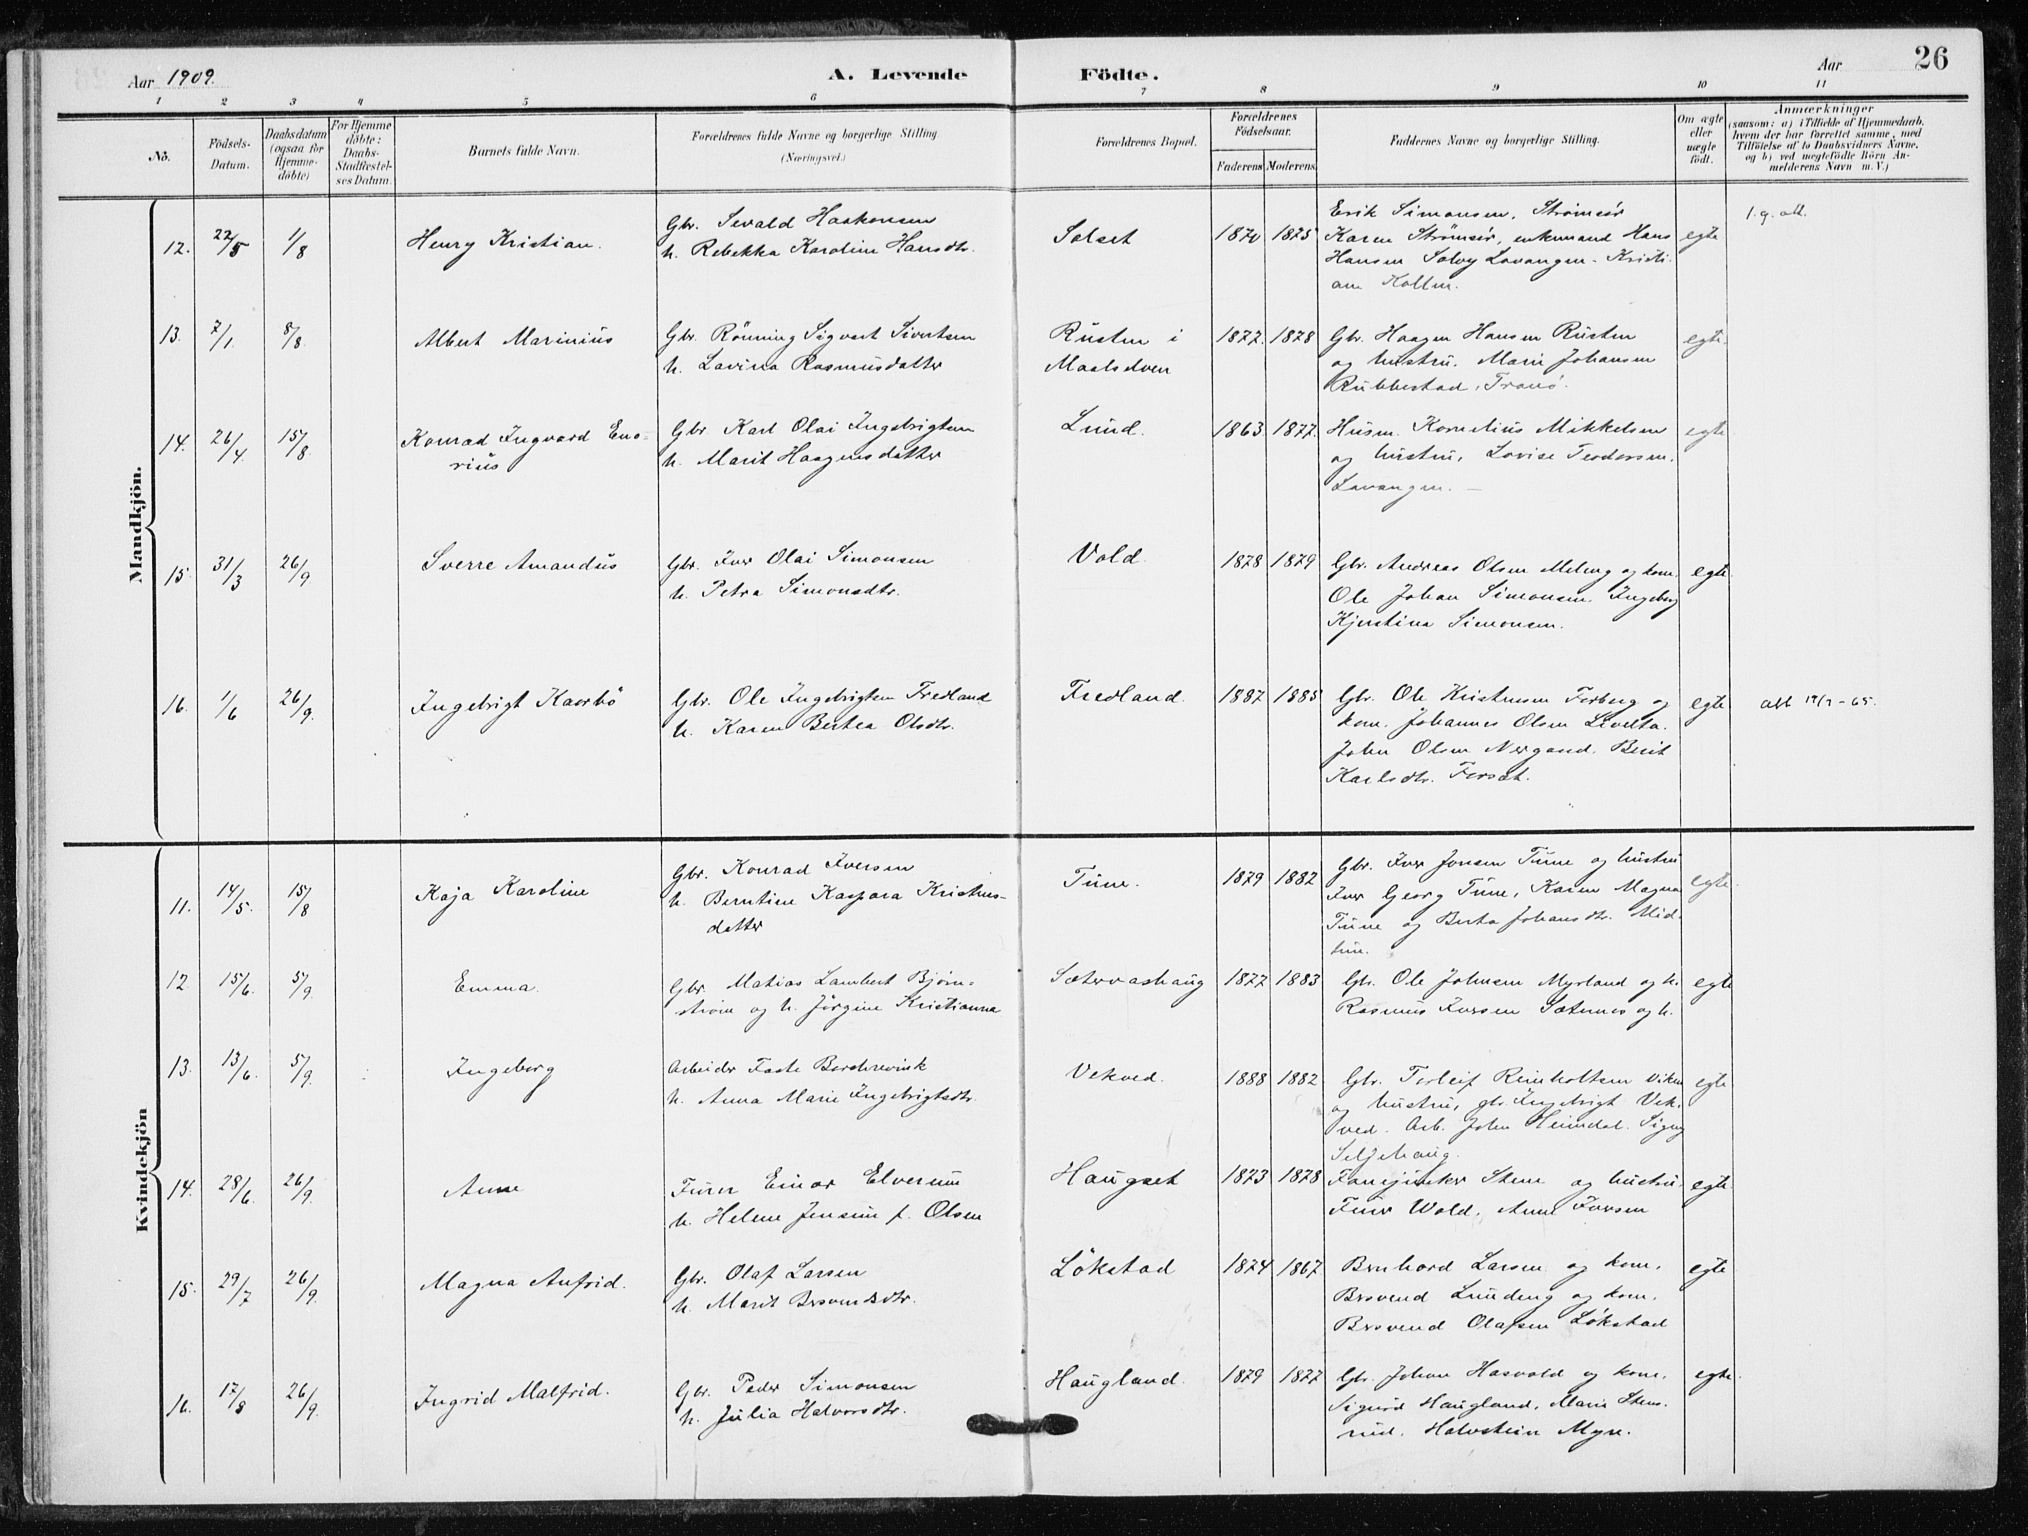 Aar 1909. A. Levende Födte. Aar 26
1 2 3 4 5 6 7 8 9 10 11
No.
Födsels-
Datum.
Daabsdatum
(ogsaa for
Hjemme-
döbte)
For Hjemme
döbte:
Daabs-
Stadfestel-
ses Datum.
Barnets fulde Navn.
Forældrenes fulde Navne og borgerlige Stilling.
(Næringsvei.)
Forældrenes Bopæl.
Forældrenes
Födselsaar.
Faderens Moderens
Faddernes Navne og borgerlige Stilling.
Om ægte
eller
uægte
födt.
Anmærkninger
(saasom: a) i Tilfælde af Hjemmedaab,
hvem der har forrettet samme, med
Tilföielse af to Daabsvidners Navne,
og b) ved uægtefödte Börn An-
melderens Navn m. V.)
Mandkjön.
12. 22/5 1/8 Henry Kristian. Gbr. Sevald Haakonsen
h. Rebekka Karoline Hansdtr.
Solset 1870 1875
Erik Simonsen, Strømsør
Karen Strømsør, enkemand Hans
Hansen Solvy Lavangen - Kristi-
ane Kolln.
egte
13. 7/1. 8/8. Albert Marinius Gbr. Rönning Sigvart Sivertsen
h. Lavina Rasmusdatter
Rusten i
Maalselven
1872. 1878
Gbr. Haagen Hansen Rusten
og hustru. Marie Johansen
Rubbestad, Tranö.
egte.
14. 26/4 15/8. Konrad Ingvard Eno-
rius
Gbr. Karl Olai Ingebrigtsen
h. Marit Haagensdatter
Lund. 1863. 1877.
Husm. Kornelius Mikkelsen
og hustru, Lovise Teodorsen.
Lavangen. -
egte
15. 31/3 26/9 Sverre Amandus Gbr. Iver Olai Simonsen
h. Petra Simonsdtr.
Vold. 1878 1879
Gbr. Andreas Olsen Moleng og kone.
Ole Johan Simonsen. Ingeborg
Kjerstina Simonsen.
egte.
16. 1/6 26/9. Ingebrigt Kaarbö Gbr. Ole Ingebrigtsen Fredland
h. Karen Bertea Olsdtr.
Fredland. 1887 1885
Gbr. Ole Kristensen Forberg og
kone. Johannes Olsen
John Olsen Nergaard. Berit
Karlsdtr. Forsæt.
egte
Kvindekjön
11. 14/5. 15/8 Kaja Karoline Gbr. Konrad Iversen
h. Berntine Kaspara Kristens-
datter
Tune. 1879 1882
Gbr. Iver Jonsen Tune og hustru
Iver Georg Tune, Karen Magna
Tune og Berta Johansdtr. Mid-
tun.
egte.
12 15/6. 5/9. Emma. Gbr. Matias Lambert Bjørn-
strøm og h. Jørgine Kristianna
Sætervashaug 1877 1883
Gbr. Ole Johnsen Myrland og h.
Rasmus Iversen Sæternes og h.
egte
13. 13/6. 5/9. Ingeborg Arbeider Faste Borchrevink
h. Anna Marie Ingebrigtsdtr.
Vekved. 1888 1882
Gbr. Torleif Reinholtsen Viken
og hustru, gbr. Ingebrigt Vek-
ved. Arb. John Heimdal. Signy
Seljehaug.
egte
14. 28/6. 26/9. Anne Furer Einar Elverum
h. Helene Jensine f. Olsen
Haugset 1873 1878
Fanejunker Stene og hustru.
Furer Wold. Anne Iversen
egte.
15. 29/7 26/9. Magna Anfrid. Gbr. Olaf Larsen
h. Marit Brovendsdtr.
Lökstad 1874 1867
Bernhard Larsen og kone.
Brovend Lundeng og kone.
Brovend Olafsen Lökstad
egte
16. 17/8 26/9. Ingrid Malfrid. Gbr. Peder Simonsen
h. Julia Halvorsdtr.
Haugland. 1879 1877
Gbr. Johan Hasvold og kone.
Sigurd Haugland, Marie Stens-
rud. Halvstein Myre.
egte